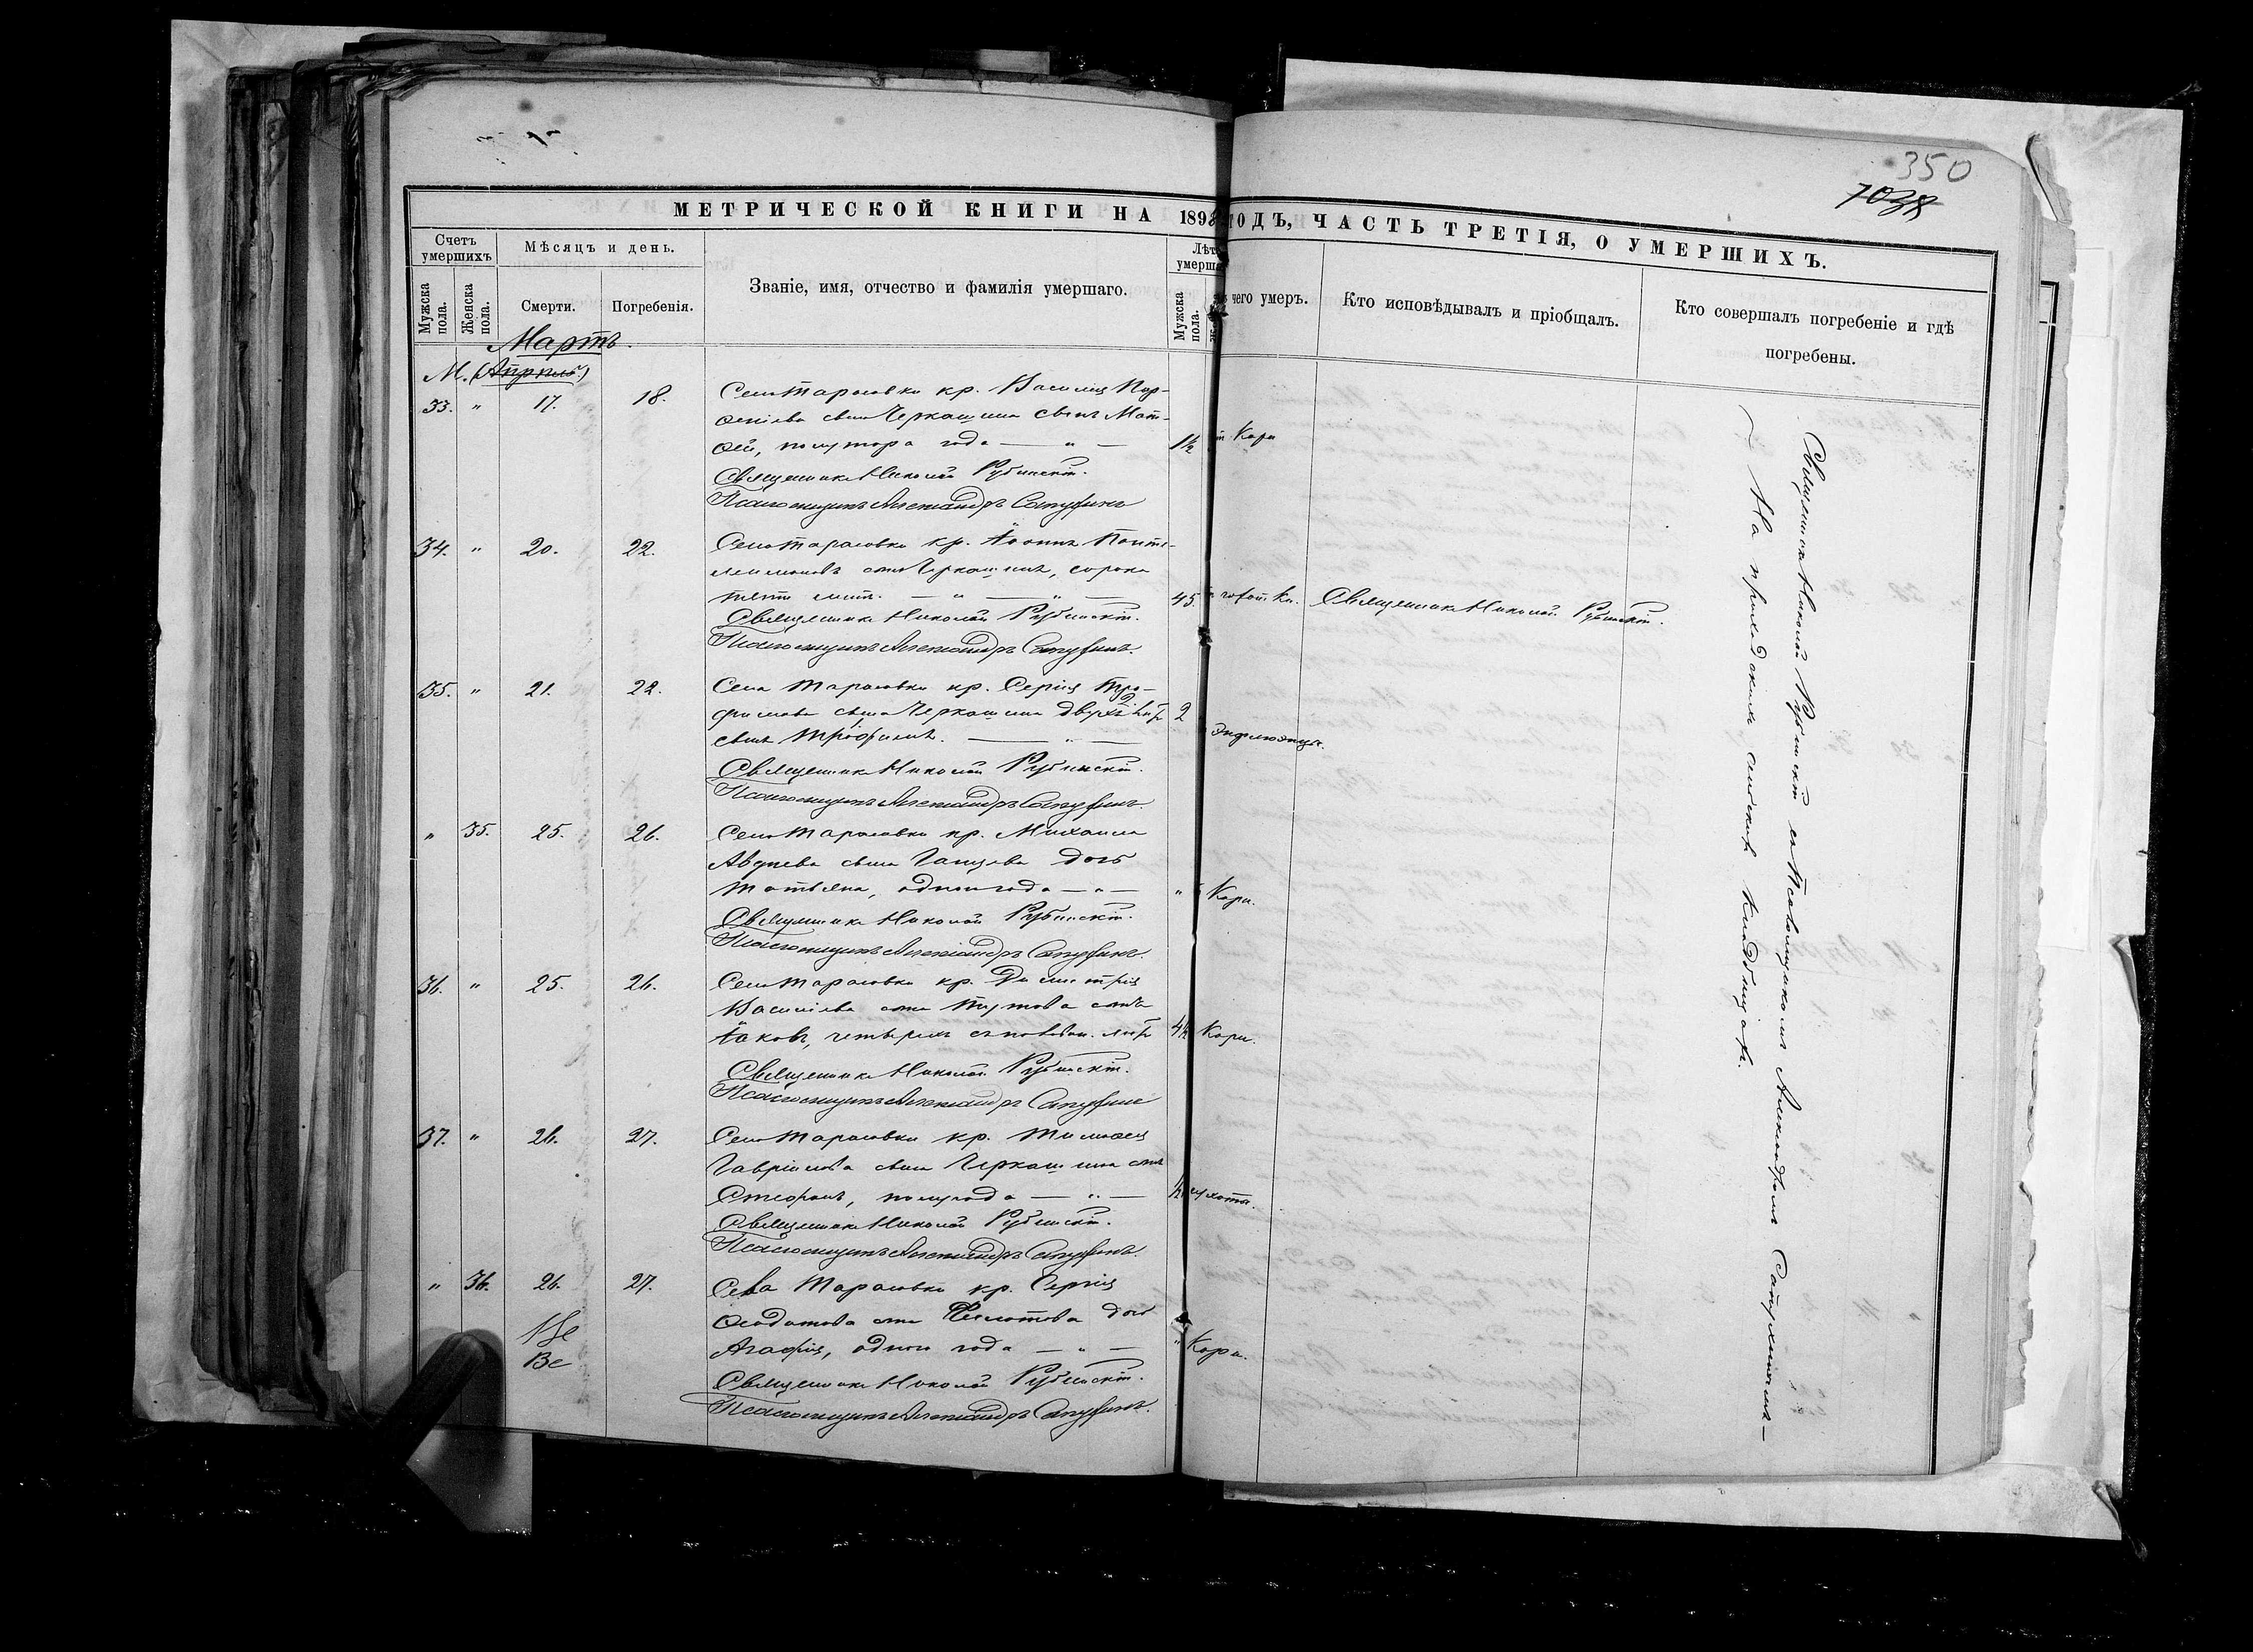 350
1038
МЕТРИЧЕСКОЙ КНИГИ НА 1893 ГОДЪ, ЧАСТЬ ТРЕТІЯ, О УМЕРШИХЪ.
Счетъ умершихъ
Мѣсяцъ и день.
Званіе, имя, отчество и фамилія умершаго.
Лѣт
умерша
чего умеръ.
Кто исповѣдывалъ и пріобщалъ.
Кто совершалъ погребеніе и гдѣ
погребены.
Мужска пола.
Женска пола.
Смерти.
Погребенія.
Мужска пола.
Мартъ.
М. (Апрель)
33. " 17. 18. Села Тарасовки кр. Василія Пар-
ѳеніева сына Черкашина сынъ Мат-
ѳей, полутора года — " — 1½ Кори
Священникъ Николай Рубинскій.
Псаломщикъ Александръ Сапухинъ
34. " 20. 22. Села Тарасовки кр. Іоаннъ Панте-
леимоновъ сынъ Черкашинъ, сорока
пяти лѣтъ. — " — " — 45. Священникъ Николай Рубинскій.
Священникъ Николай Рубинскій.
Псаломщикъ Александръ Сапухинъ.
35. " 21. 22. Села Тарасовки кр. Сергія Тро-
фимова сына Черкашина двухъ лѣтъ 2
сынъ Трофимъ. — " — Инфлюэнцы.
Священникъ Николай Рубинскій.
Псаломщикъ Александръ Сапухинъ.
" 35. 25. 26. Села Тарасовки кр. Михаила
Авдиева сына Ганцева дочь
Татьяна, одного года — " — " Кори.
Священникъ Николай Рубинскій.
Псаломщикъ Александръ Сапухинъ.
36. " 25. 26. Села Тарасовки кр. Димитрія
Васильева сына Титова сынъ
Іаковъ, четырехъ съ половин. лѣтъ 4½ Кори.
Священникъ Николай Рубинскій.
Псаломщикъ Александръ Сапухинъ
37. " 26. 27. Села Тарасовки кр. Тимоѳея
Гавріилова сына Черкашина сынъ
Стефанъ, полугода — " — ½ сухотки.
Священникъ Николай Рубинскій.
Псаломщикъ Александръ Сапухинъ.
" 36. 26. 27. Села Тарасовки кр. Сергія
Ѳеодотова сына дочь
Агафія, одного года — " — " Кори.
Священникъ Николай Рубинскій.
Псаломщикъ Александръ Сапухинъ.
Священникъ Николай Рубинскій съ Псаломщикомъ Александромъ Сапухинымъ —
На приходскомъ сельскомъ кладбищѣ.